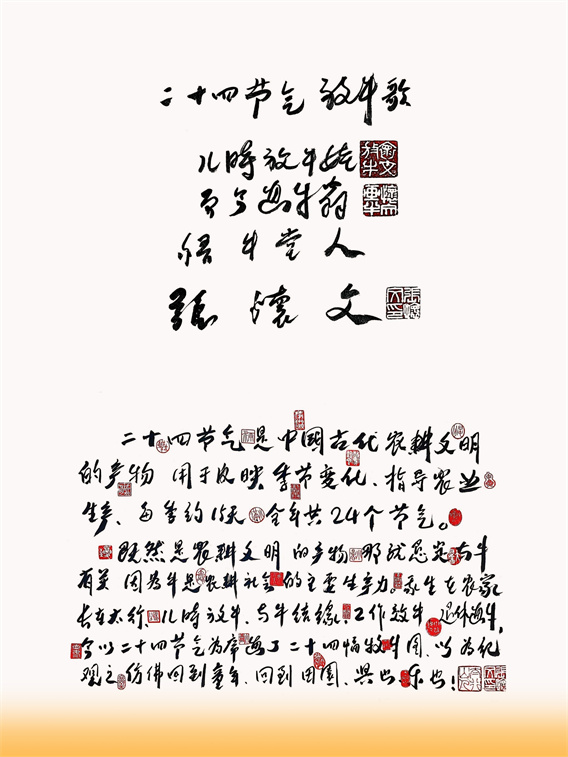 二十四节气 放牛歌
儿時放牛娃
而今画牛翁
悟牛堂人
張懷文
二十四节气是中国古代农耕文明
的产物 用于反映季节变化、指导农业
生产、每季约15天 全年共24个节气。
既然是农耕文明的产物 那就与牛
有关 因为牛是农耕社会的主要生产力。我生在农家
长在太行 儿時放牛、与牛结缘！工作效牛 退休画牛，
今以二十四节气为序画了二十四幅牧牛图、以为纪
观之仿佛回到童年、回到田园、興也、乐也！